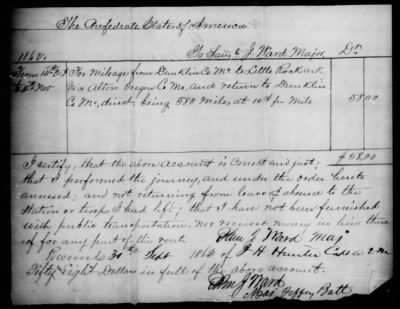 The Confederate States of America
1862. To Sam, J. Ward Major, Dr
From 14th Oct For Mileage from Dunklin Co Mo to Little Rock Ark,
to Nov Via Alton Oregon Co Mo, and return to Dunklin
Co Mo, direct, being 580 miles, at 10cts pr Mile 58.00
$58.00
I certify, that the above account is Correct and just;
that I performed the journey, and under the order hereto
annexed; and not returning from leave of absence to the
Station or troops I had left; that I have not been furnished
with public transportation, nor received money in lieu there
of for any part of the route
Sam J Ward Maj
Received 30th Sept 1863 of J H Hunter
Fifty Eight Dollars in full of the above account.
Sam J Ward
Maj Jeffrey Batt